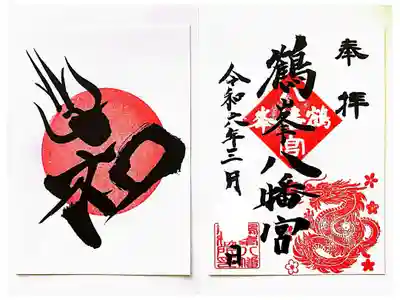 奉拝
鶴峯八幡宮
令和六年三月 日
和